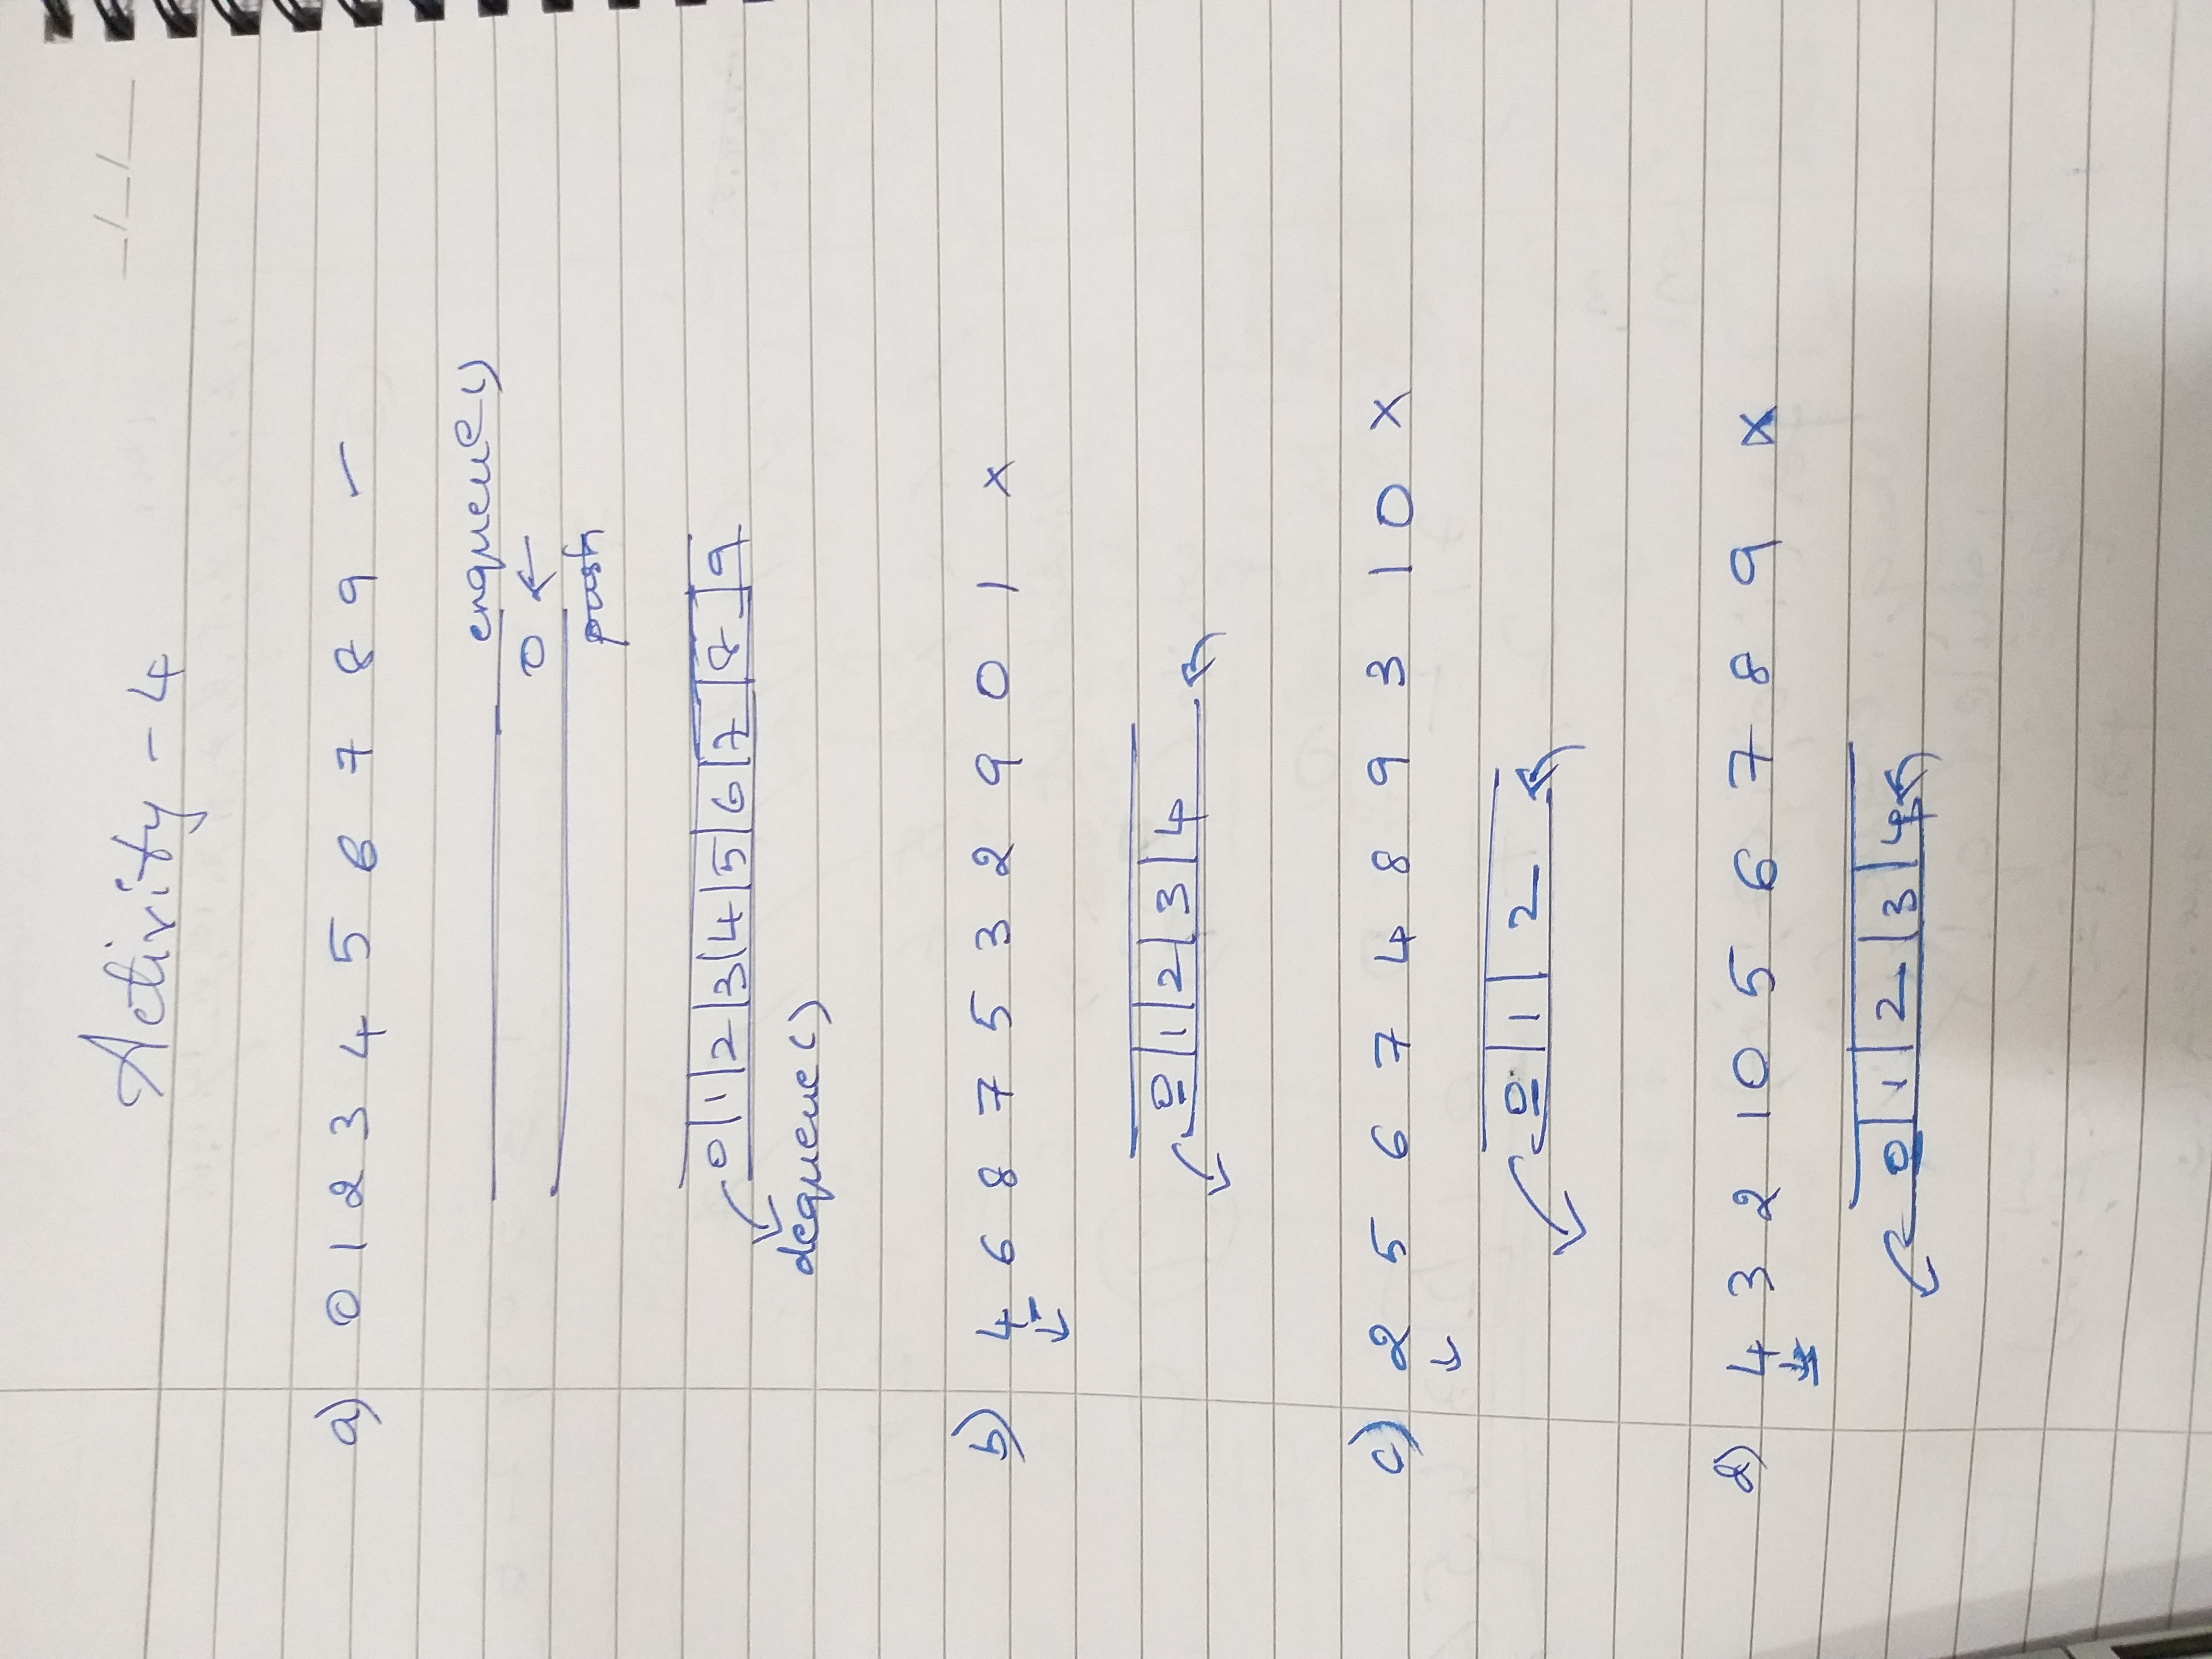 Activity - 4
a) 0 1 2 3 4 5 6 7 8 9 ✓
enqueue()
0 ←
push
0 | 1 | 2 | 3 | 4 | 5 | 6 | 7 | 8 | 9
dequeue()
b) 4 6 8 7 5 3 2 9 0 1 ×
0 | 1 | 2 | 3 | 4
c) 2 5 6 7 4 8 9 3 1 0 ×
0 | 1 | 2
d) 4 3 2 1 0 5 6 7 8 9 ×
0 | 1 | 2 | 3 | 4